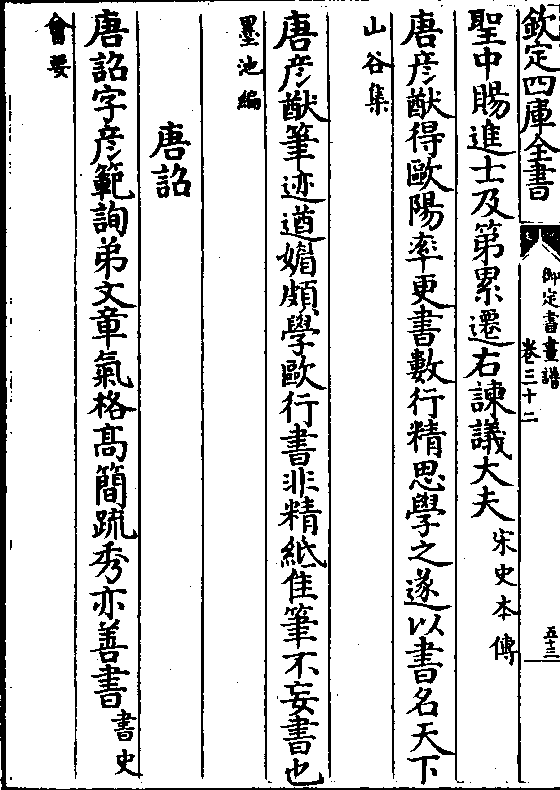 欽定四庫全書
御定書畫譜
卷三十二
五十三
聖中賜進士及第累遷右諫議大夫宋史本傳
唐彦猷得歐陽率更書數行精思學之遂以書名天下
山谷集
唐彦猷筆迹遒媚頗學歐行書非精紙佳筆不妄書也
墨池編
唐詔
唐詔字彦範詢弟文章氣格髙簡疏秀亦善書書史
會要